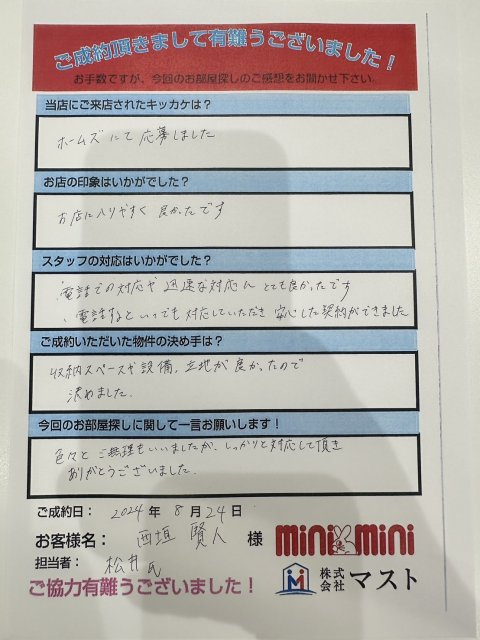 ご成約頂きまして有難うございました！
お手数ですが、今回のお部屋探しのご感想をお聞かせ下さい。
当店にご来店されたキッカケは？
ホームズにて応募しました
お店の印象はいかがでした？
お店に入りやすく良かったです
スタッフの対応はいかがでした？
・電話での対応や迅速な対応にとても良かったです
・電話するといつでも対応していただき安心した契約ができました
ご成約いただいた物件の決め手は？
収納スペースや設備、立地が良かったので
決めました。
今回のお部屋探しに関して一言お願いします！
色々とご無理もいいましたが、しっかりと対応して頂き
ありがとうございました。
ご成約日： 2024年 8月24日
お客様名： 西垣 賢人 様
担当者： 松井氏
mini mini
株式会社 マスト
ご協力有難うございました！